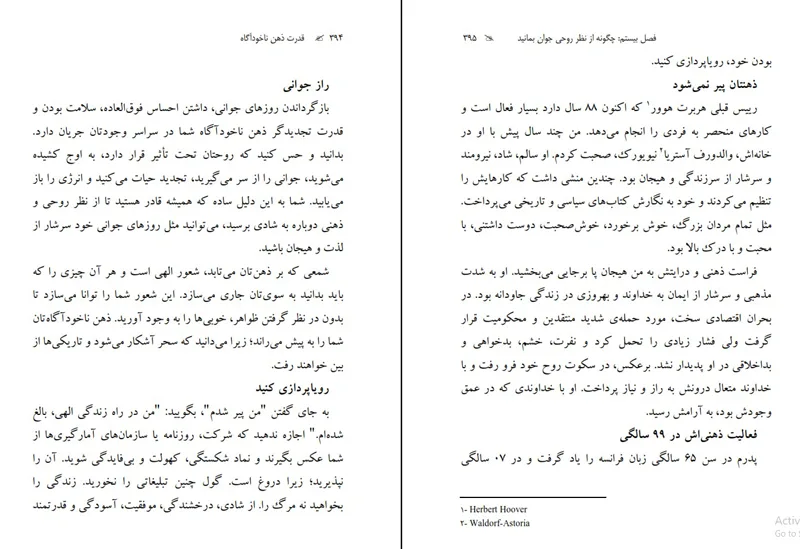 ۳۹۴ قدرت ذهن ناخودآگاه
راز جوانی
بازگرداندن روزهای جوانی، داشتن احساس فوق‌العاده، سلامت بودن و
قدرت تجدیدگر ذهن ناخودآگاه شما در سراسر وجودتان جریان دارد.
بدانید و حس کنید که روحتان تحت تأثیر قرار دارد، به اوج کشیده
می‌شوید، جوانی را از سر می‌گیرید، تجدید حیات می‌کنید و انرژی را باز
می‌یابید. شما به این دلیل ساده که همیشه قادر هستید تا از نظر روحی و
ذهنی دوباره به شادی برسید، می‌توانید مثل روزهای جوانی خود سرشار از
لذت و هیجان باشید.
شمعی که بر ذهن‌تان می‌تابد، شعور الهی است و هر آن چیزی را که
باید بدانید به سوی‌تان جاری می‌سازد. این شعور شما را توانا می‌سازد تا
بدون در نظر گرفتن ظواهر، خوبی‌ها را به وجود آورید. ذهن ناخودآگاه‌تان
شما را به پیش می‌راند؛ زیرا می‌دانید که سحر آشکار می‌شود و تاریکی‌ها از
بین خواهند رفت.
رویاپردازی کنید
به جای گفتن "من پیر شدم"، بگویید: "من در راه زندگی الهی، بالغ
شده‌ام." اجازه ندهید که شرکت، روزنامه یا سازمان‌های آمارگیری‌ها از
شما عکس بگیرند و نماد شکستگی، کهولت و بی‌فایدگی شوید. آن را
نپذیرید؛ زیرا دروغ است. گول چنین تبلیغاتی را نخورید. زندگی را
بخواهید نه مرگ را. از شادی، درخشندگی، موفقیت، آسودگی و قدرتمند
فصل بیستم: چگونه از نظر روحی جوان بمانید ۳۹۵
بودن خود، رویاپردازی کنید.
ذهنتان پیر نمی‌شود
رییس قبلی هربرت هوور۱ که اکنون ۸۸ سال دارد بسیار فعال است و
کارهای منحصر به فردی را انجام می‌دهد. من چند سال پیش با او در
خانه‌اش، والدورف آستریا۲ نیویورک، صحبت کردم. او سالم، شاد، نیرومند
و سرشار از سرزندگی و هیجان بود. چندین منشی داشت که کارهایش را
تنظیم می‌کردند و خود به نگارش کتاب‌های سیاسی و تاریخی می‌پرداخت.
مثل تمام مردان بزرگ، خوش برخورد، خوش‌صحبت، دوست داشتنی، با
محبت و با درک بالا بود.
فراست ذهنی و درایتش به من هیجان پا برجایی می‌بخشید. او به شدت
مذهبی و سرشار از ایمان به خداوند و بهروزی در زندگی جاودانه بود. در
بحران اقتصادی سخت، مورد حمله‌ی شدید منتقدین و محکومیت قرار
گرفت ولی فشار زیادی را تحمل کرد و نفرت، خشم، بدخواهی و
بداخلاقی در او پدیدار نشد. برعکس، در سکوت روح خود فرو رفت و با
خداوند متعال درونش به راز و نیاز پرداخت. او با خداوندی که در عمق
وجودش بود، به آرامش رسید.
فعالیت ذهنی‌اش در ۹۹ سالگی
پدرم در سن ۶۵ سالگی زبان فرانسه را یاد گرفت و در ۰۷ سالگی
۱- Herbert Hoover
۲- Waldorf-Astoria
Activ
Go to S